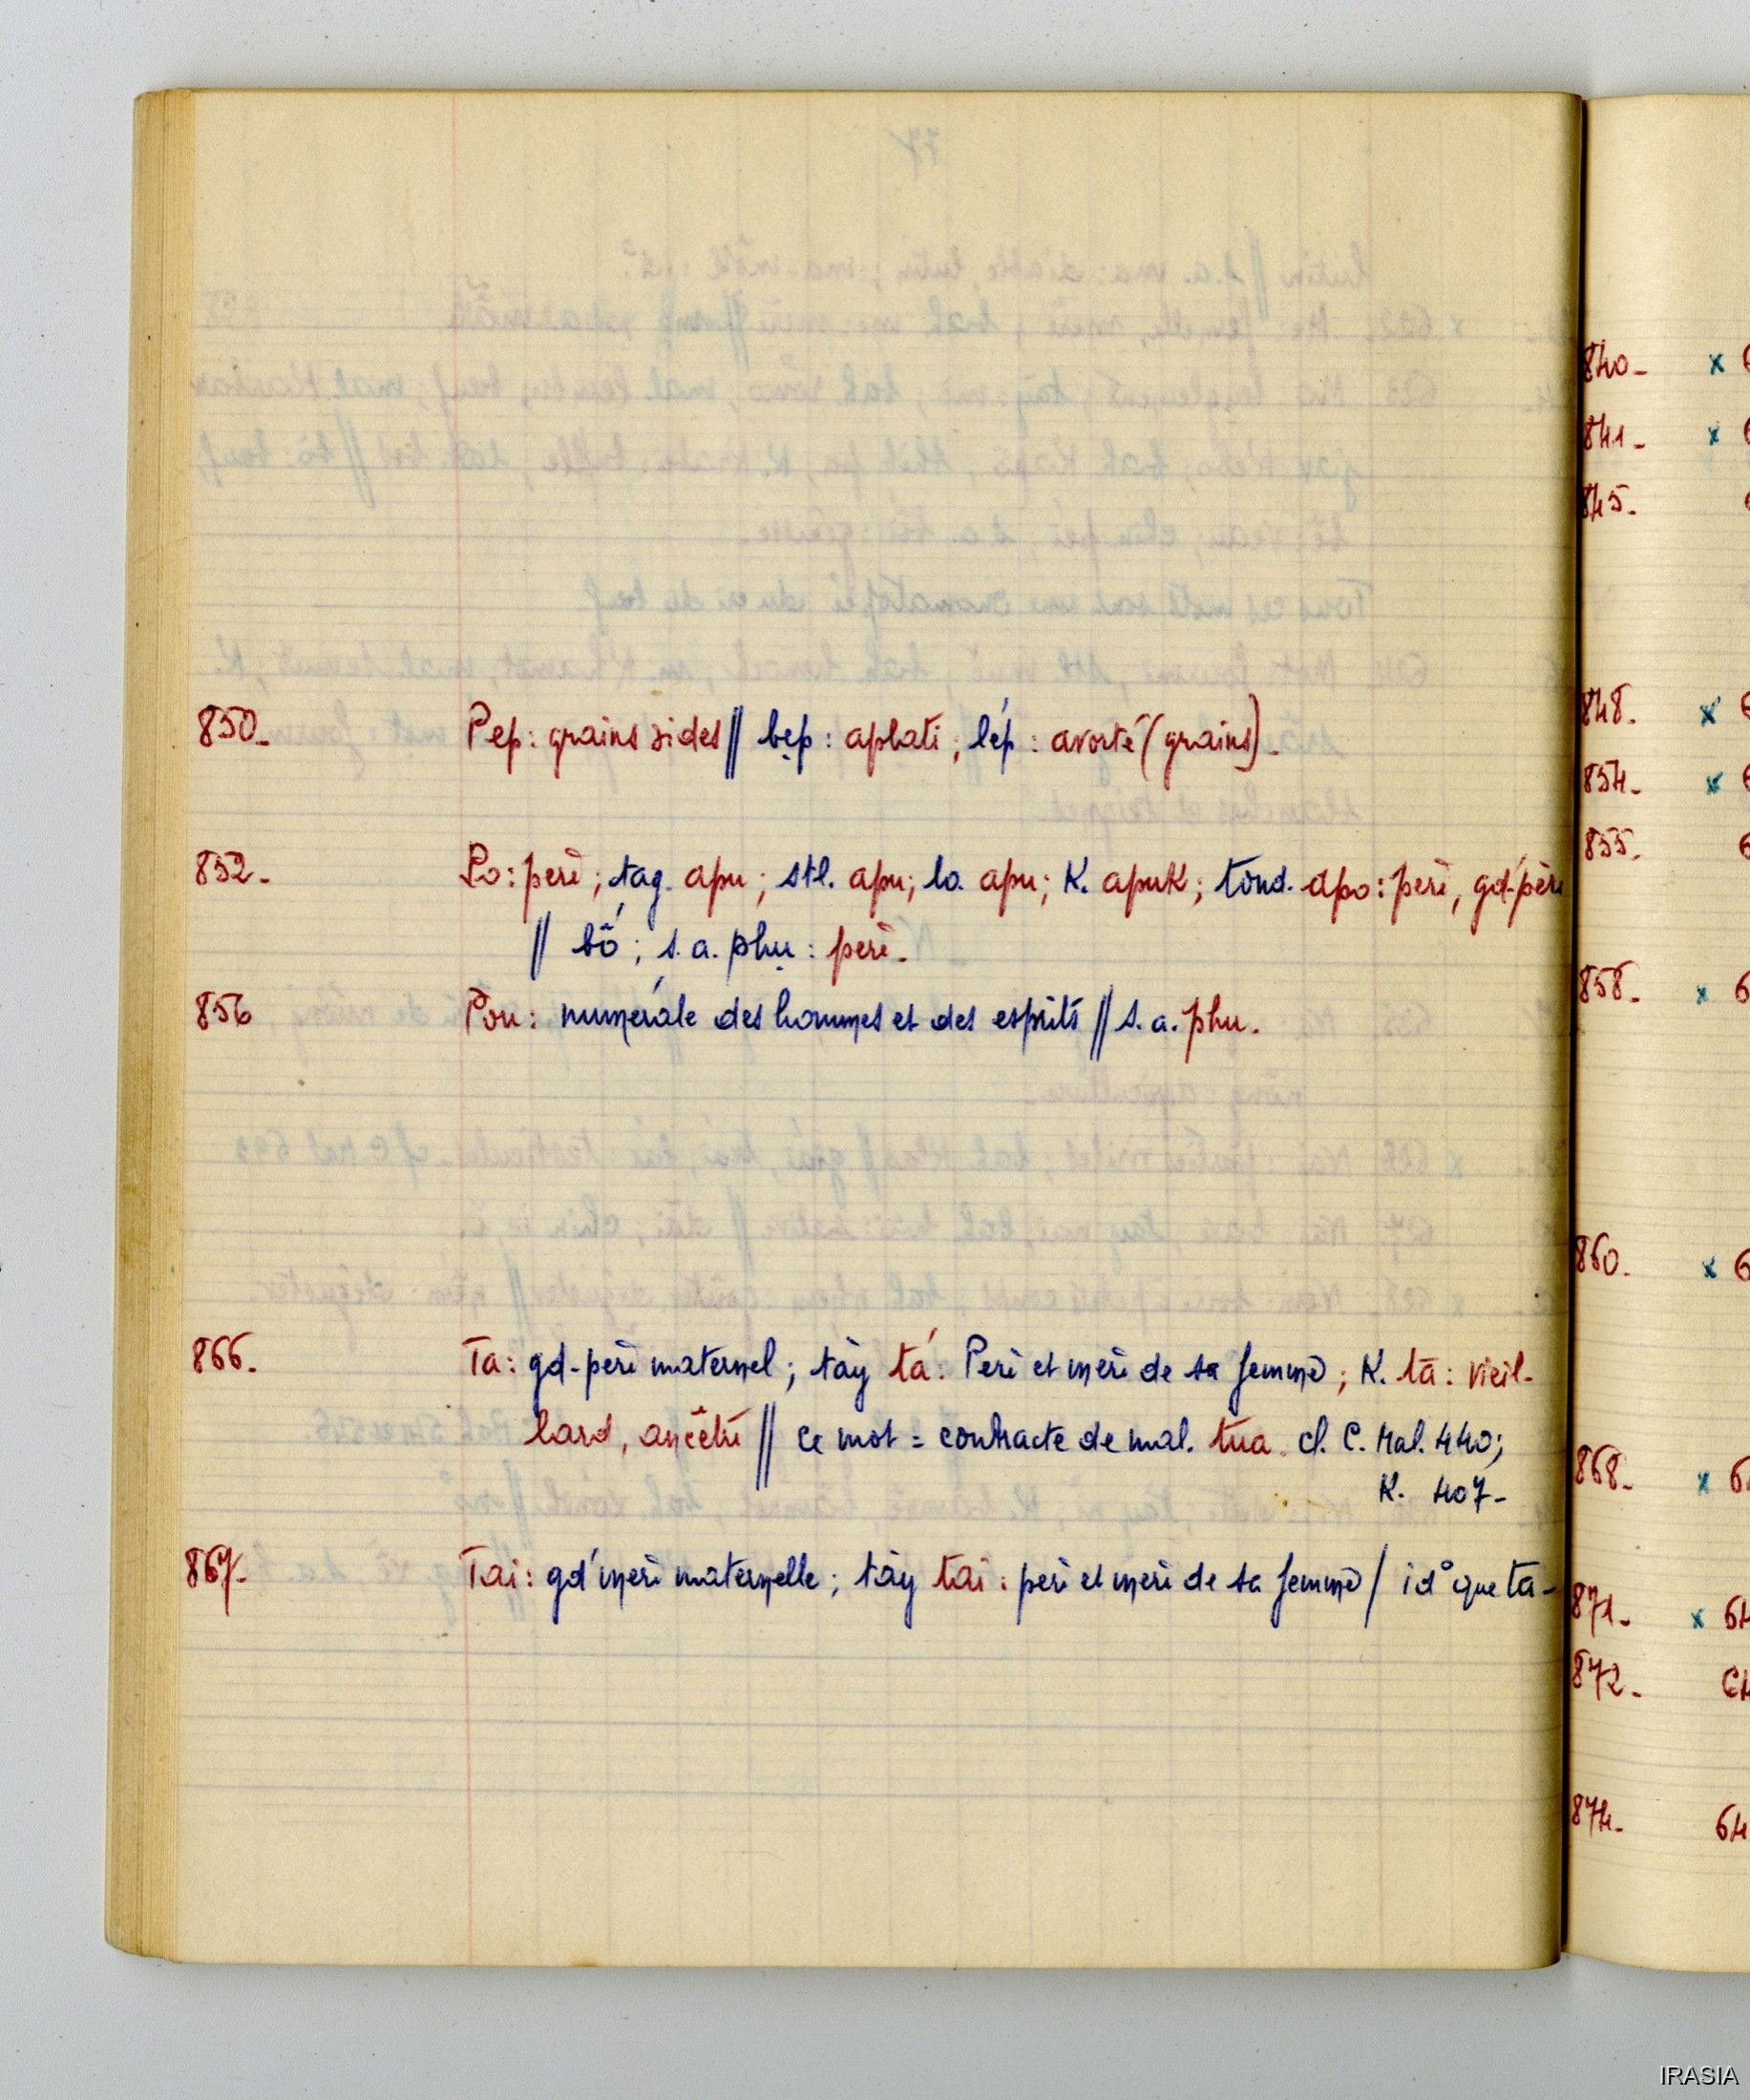 850- Pep: grains vides // bẹp: aplati; lép: avorté (grains).
852- Po: père; tag. apu; stl. apu; lo. apu; K. apuK; tond. apo: père, gd-père
// bố; s.a. phụ: père.
856 Pou: numérale des hommes et des esprits // s.a. phu.
866- Ta: gd-père maternel; tày tá: Père et mère de sa femme; K. tā: vieil-
lard, ancêtre // ce mot = contracte de mal. tua. cf. C. Mal. 440;
K. 407-
867- Tai: gd'mère maternelle; tày tai: père et mère de sa femme / id° que ta-
840- x
841- x
845-
848- x
854- x
855-
858- x 6
860- x 6
868- x 6
871- x 64
872-
874- 64
IRASIA